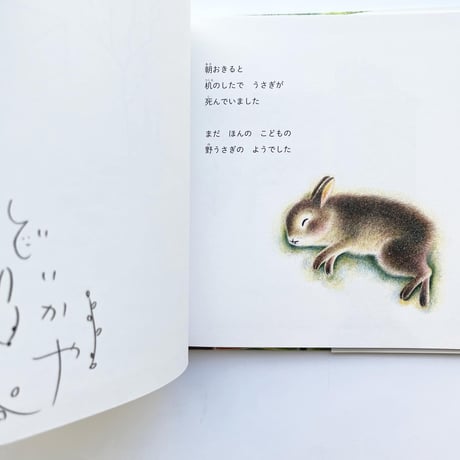 朝おきると
机のしたで　うさぎが
死んでいました
まだ　ほんの　こどもの
野うさぎの　ようでした
いかや